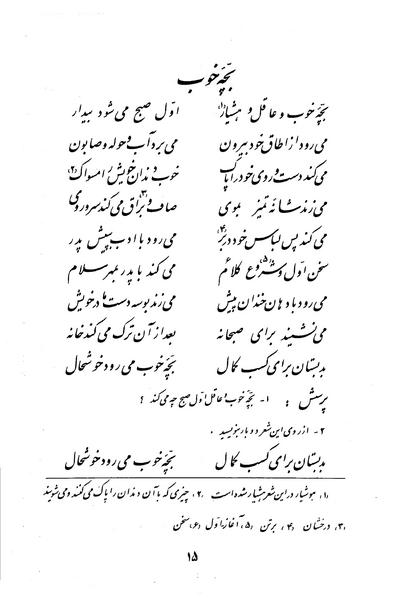 بچّه خوب
بچّه خوب و عاقل و هشیار(۱) اوّل صبح می‌شود بیدار
می‌رود از اطاق خود بیرون می‌برد آب و حوله و صابون
می‌کند دست و روی خود را پاک خوب و دندان خویش را مسواک(۲)
می‌زند شانهٔ تمیز بموی صاف و برّاق(۳) می‌کند سر و روی
می‌کند پس لباس خود در بر(۴) می‌رود با ادب به پیش پدر
سخن اوّل و شروع(۵) کلام(۶) می‌کند با پدر بمهر سلام
می‌رود با دهان خندان پیش می‌زند بوسه دست مادر خویش
می‌نشیند برای صبحانه بعد از آن ترک می‌کند خانه
بدبستان برای کسب کمال بچّه خوب می‌رود خوشحال
پرسش : ۱- بچّه خوب و عاقل اوّل صبح چه می‌کند ؟
۲- از روی این شعر دو بار بنویسید .
بدبستان برای کسب کمال بچّه خوب می‌رود خوشحال
۱، هوشیار در این شعر هشیار شده است ۲، چیزی که با آن دندان را پاک می‌کنند و می‌شویند
۳، درخشان ۴، بر تن ۵، آغاز، اوّل ۶، سخن
۱۵